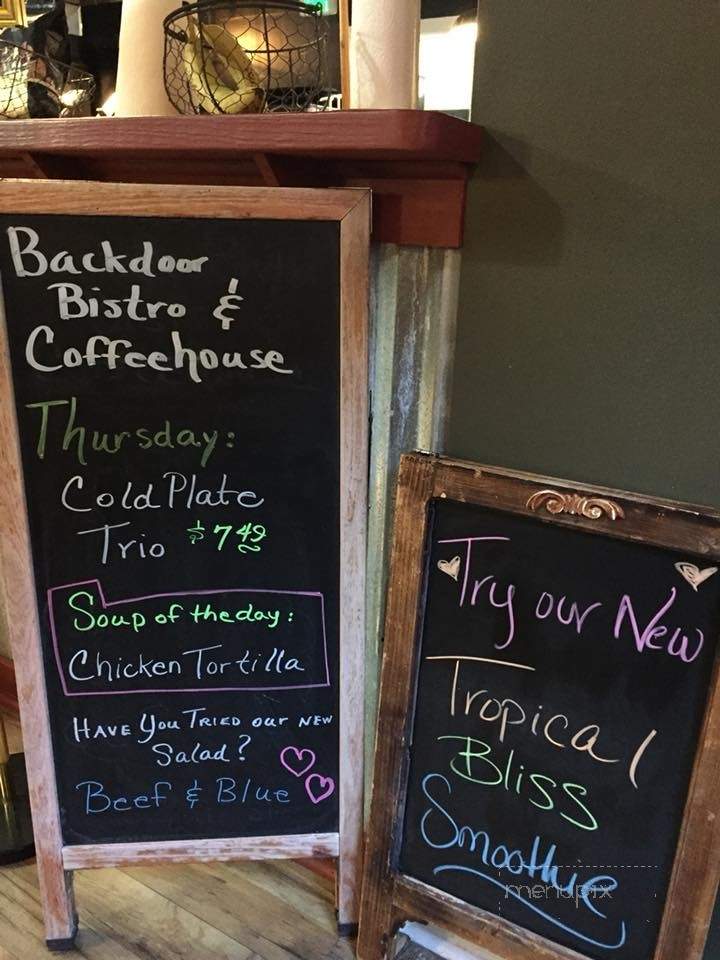 Backdoor
Bistro &
Coffeehouse
Thursday:
Cold Plate
Trio $7.49
Soup of the day:
Chicken Tortilla
HAVE YOU TRIED OUR NEW
Salad?
Beef & Blue
Try our New
Tropical
Bliss
Smoothie
menupix